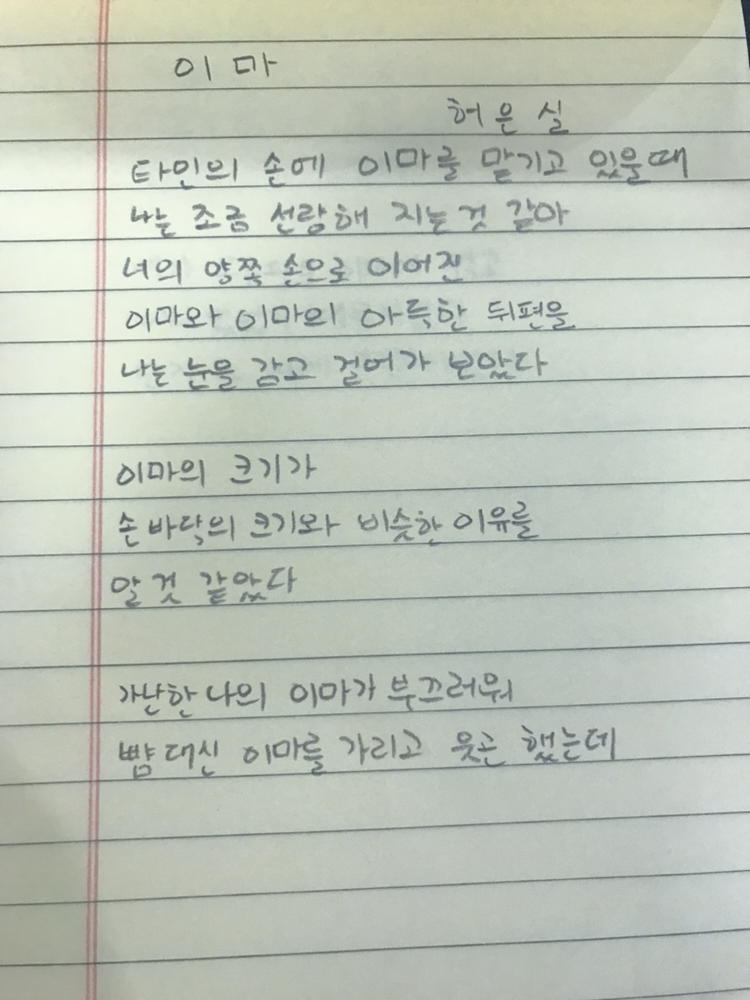 이마
허은실
타인의 손에 이마를 맡기고 있을때
나는 조금 선량해 지는것 같아
너의 양쪽 손으로 이어진
이마와 이마의 아득한 뒤편을
나는 눈을 감고 걸어가 보았다
이마의 크기가
손바닥의 크기와 비슷한 이유를
알 것 같았다
가난한 나의 이마가 부끄러워
뺨 대신 이마를 가리고 웃곤 했는데